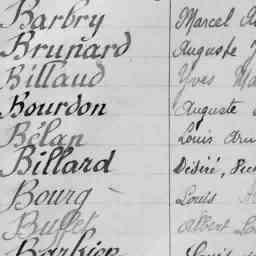 Barbry Marcel
Brunard Auguste
Billaud Yves
Bourdon Auguste
Bélan Louis
Billard Désiré,
Bourg Louis
Buffet Albert
Barbier Louis